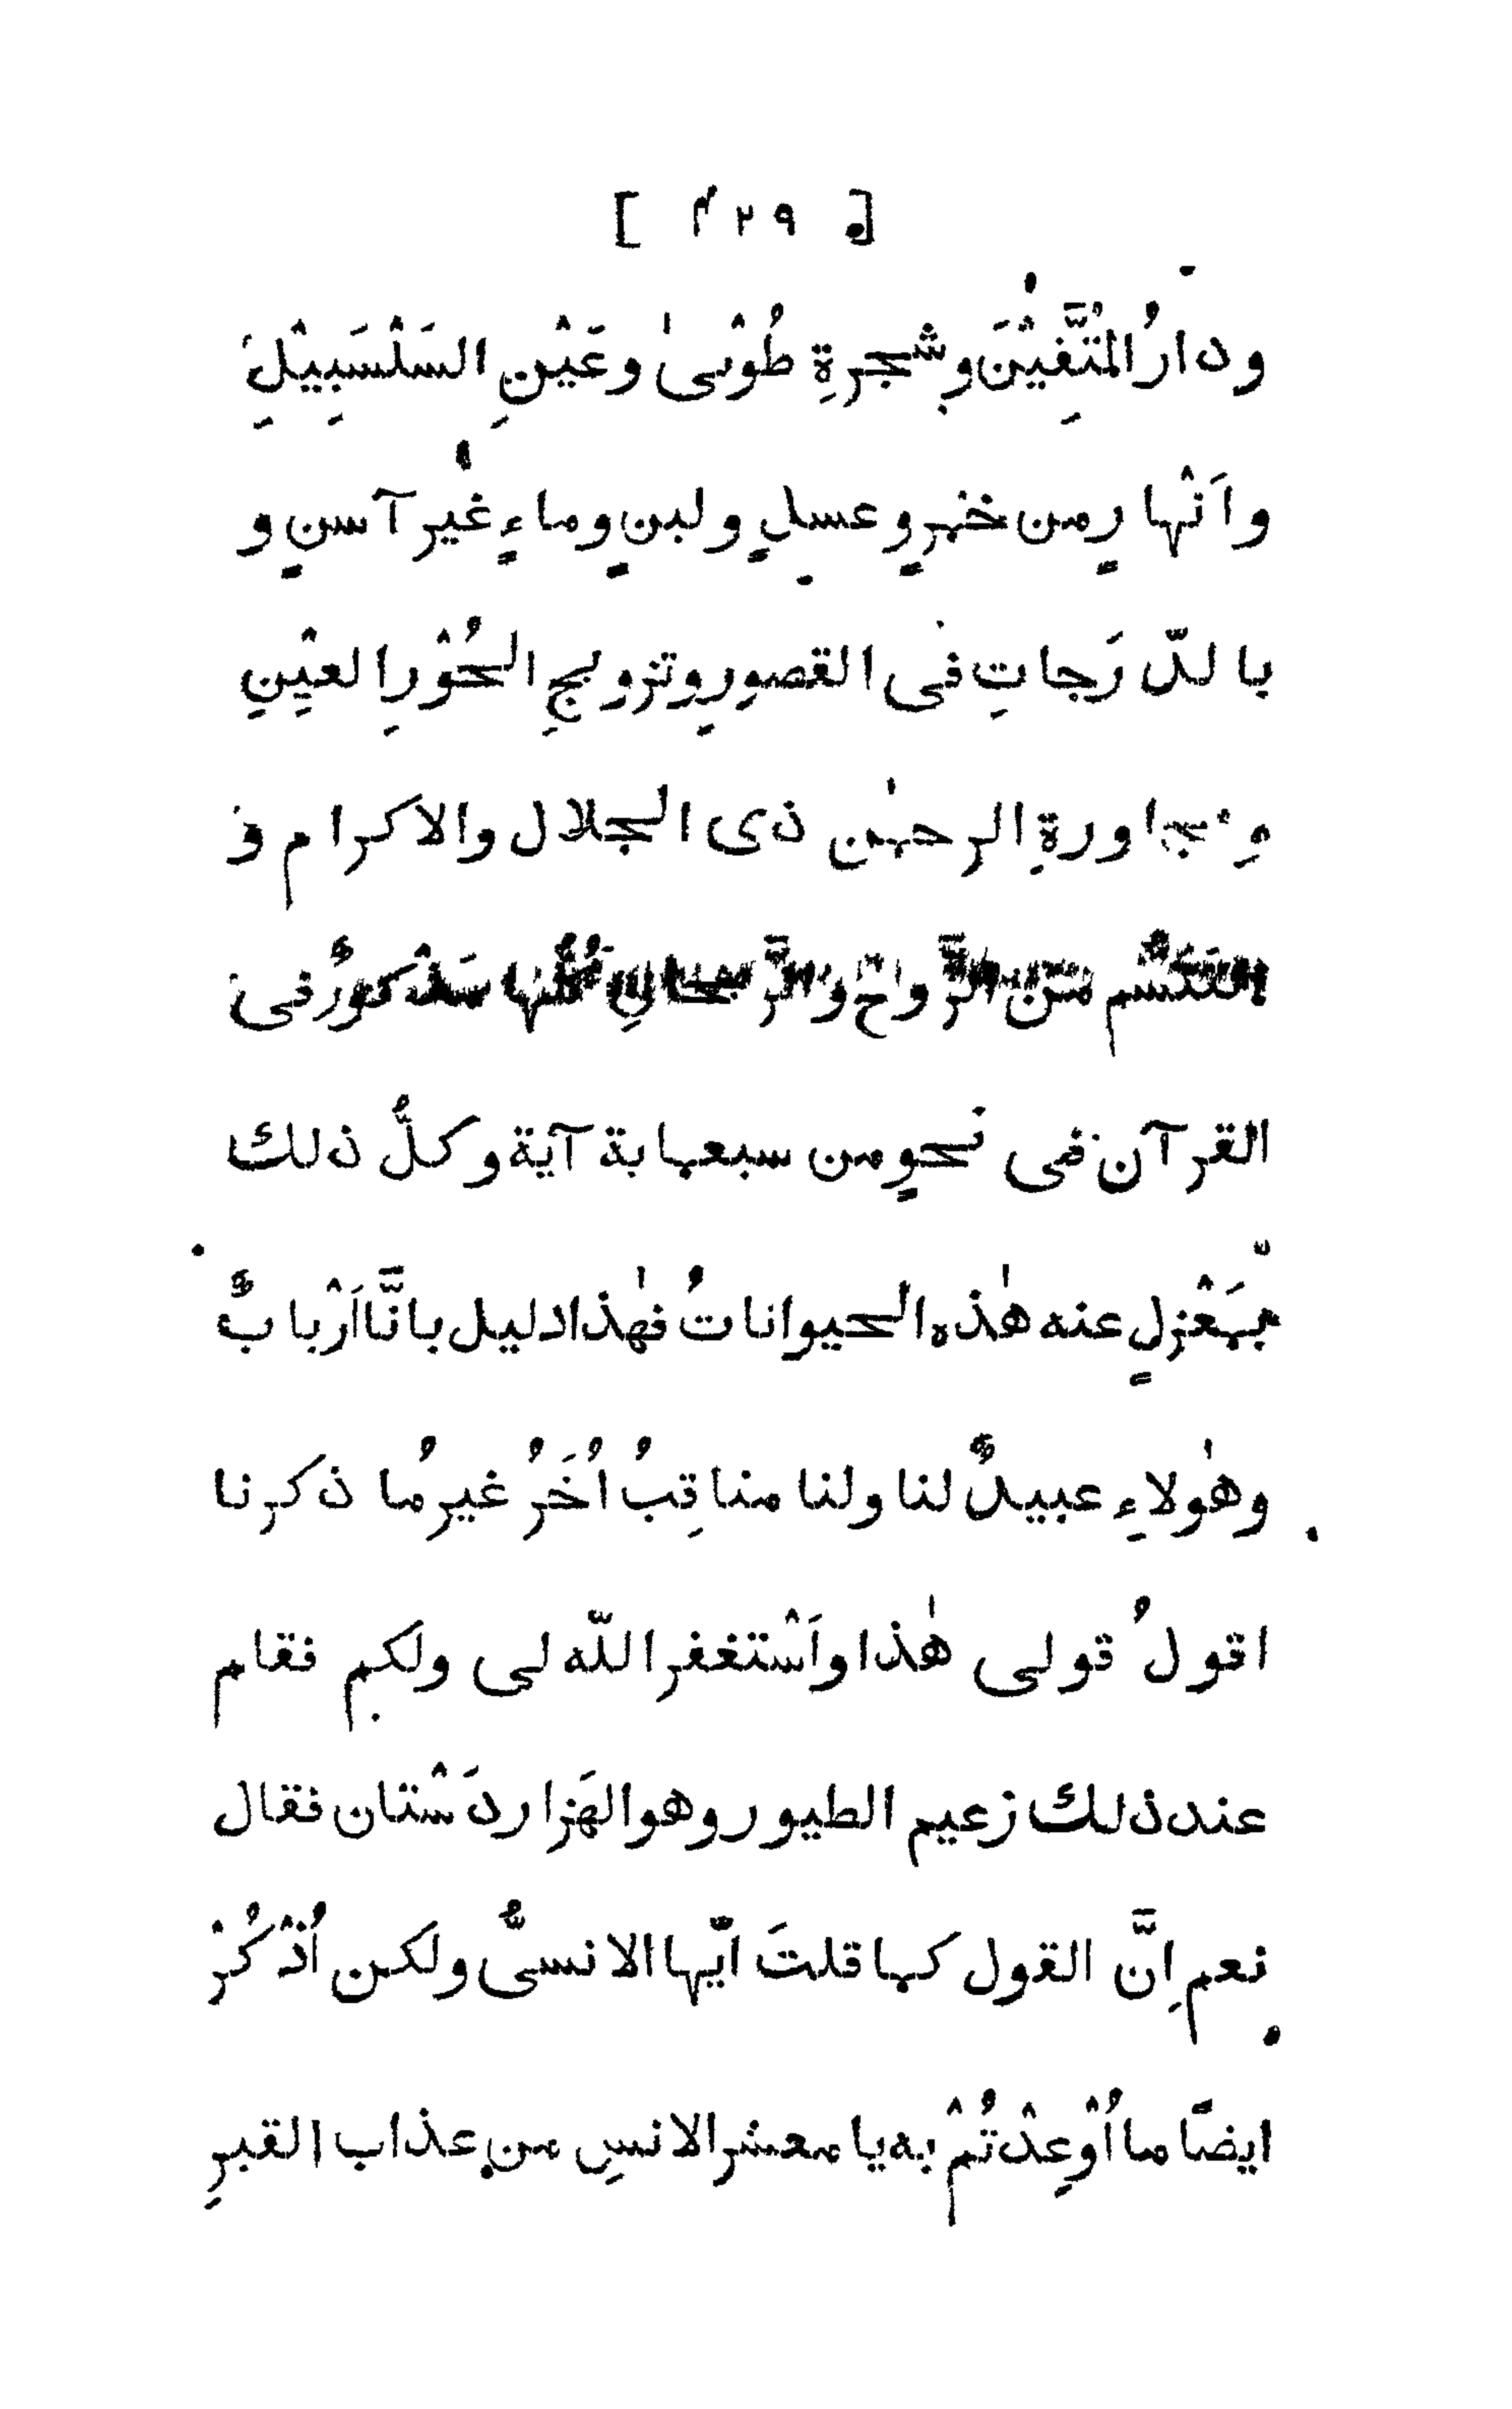 [ ۴۲۹ ]
ودارُ المُتَّقِيْنَ وشجرةِ طُوْبىٰ وعَيْنِ السَلْسَبِيْلِ
واَنْهارٍ من خمرٍ وعسلٍ ولبنٍ وماءٍ غير آسنٍ و
بالدّرَجاتِ فى القصورِ وتزويجِ الحُوْرِ العِيْنِ
ومجاورةِ الرحمٰن ذى الجلال والاكرام و
التنسُّم من الرَّوح والرَّيحانِ كُلُّها مذكورٌ فى
القرآن فى نحوٍ من سبعماية آية وكلُّ ذلك
بمَعْزلٍ عنه هٰذه الحيواناتُ فهٰذا دليل بانَّا اَرْبابٌ
وهٰولاءِ عبيدٌ لنا ولنا مناقِبُ اُخَرُ غيرُ ما ذكرنا
اقولُ قولى هٰذا واَسْتغفر اللّه لى ولكم فقام
عند ذلك زعيم الطيور وهو الهَزار دَسْتان فقال
نعم اِنَّ القول كما قلتَ ايّها الانسىُّ ولكن اُذْكُرْ
ايضًا ما اُوْعِدْتُمْ به يا معشر الانسِ من عذاب القبرِ